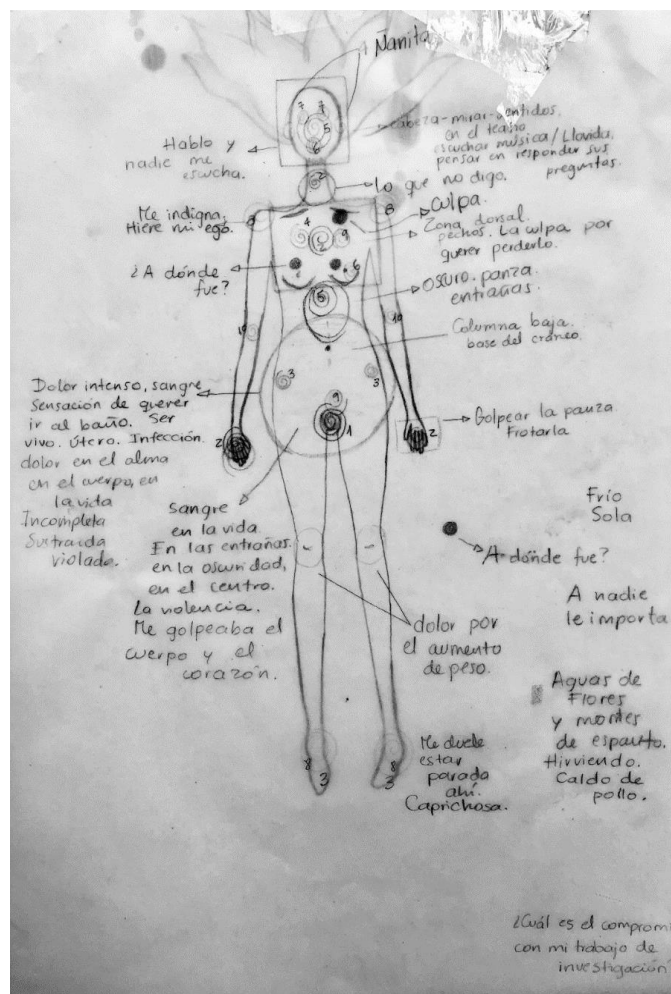 Ñanita
Cabeza-mirar-sentidos
en el teatro
escuchar música/Llovida,
pensar en responder sus
preguntas.
Hablo y
nadie me
escucha.
Lo que no digo.
Culpa.
Zona dorsal.
pechos. La culpa por
querer perderlo.
Me indigna,
Hiere mi ego.
¿A dónde
fue?
Oscuro. panza.
entrañas.
Columna baja.
base del cráneo.
Dolor intenso, sangre
Sensación de querer
ir al baño. Ser
vivo. Útero. Infección.
dolor en el alma
en el cuerpo, en
la vida
Incompleta
Sustraida
violada.
Golpear la panza.
Frotarla
sangre
en la vida.
En las entrañas.
en la oscuridad,
en el centro.
La violencia.
Me golpeaba el
cuerpo y el
corazón.
Frío
Sola
A dónde fue?
A nadie
le importa
dolor por
el aumento
de peso.
Aguas de
Flores
y montes
de espanto.
Hirviendo.
Caldo de
pollo.
Me duele
estar
parada
ahí.
Caprichosa.
¿Cuál es el comprom
con mi trabajo de
investigación?
7 7
5
6
2
8 8
4 2 9
6
5
10 10
3 3
9
1
2 2
8 8
3 3